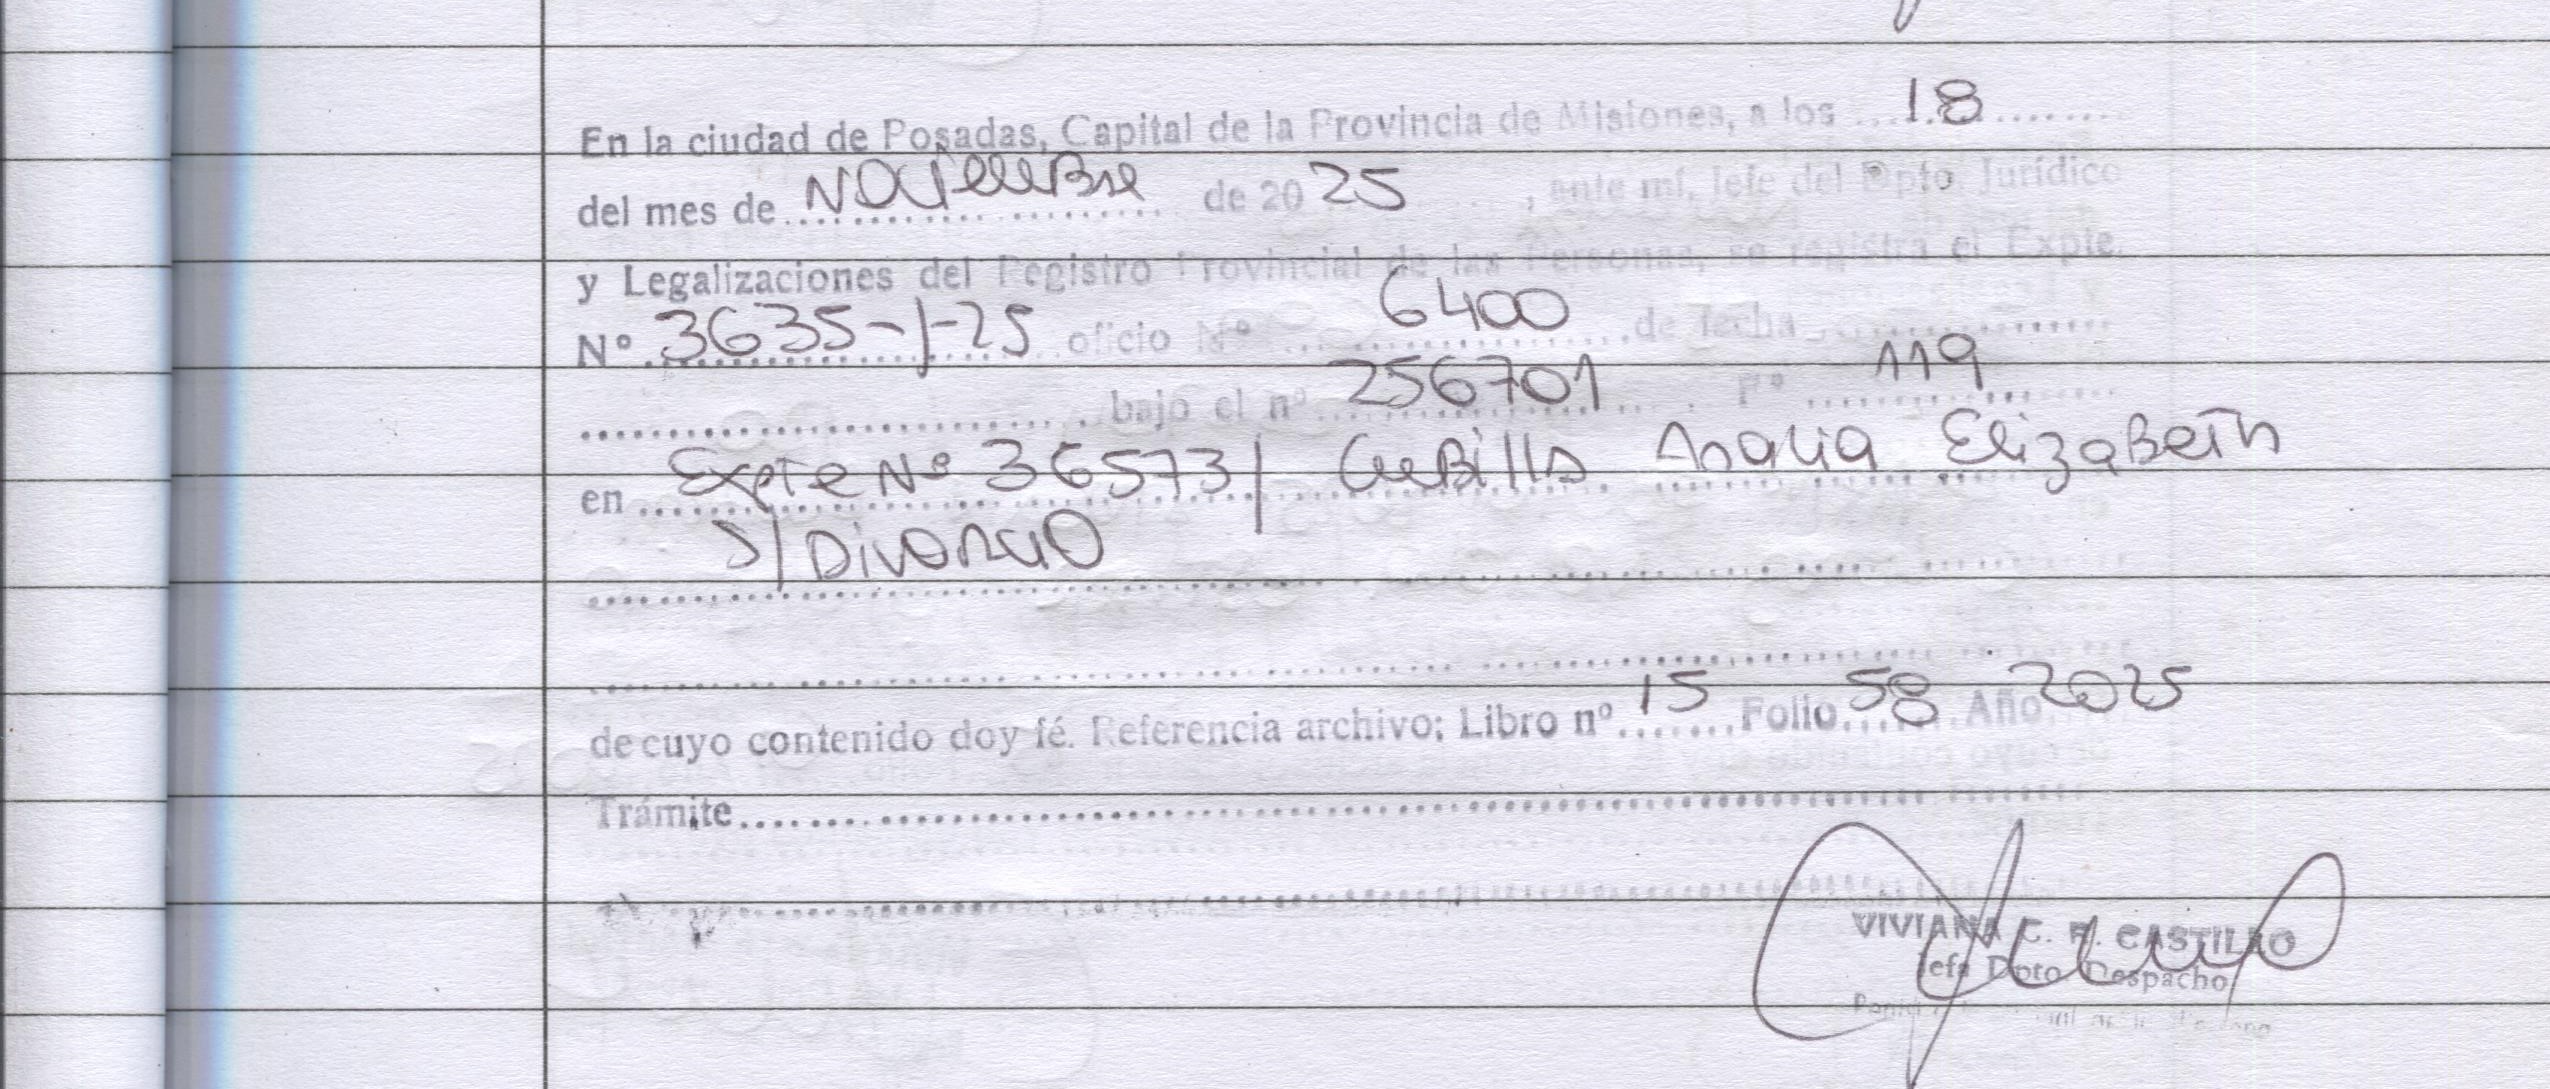 En la ciudad de Posadas, Capital de la Provincia de Misiones, a los 18
del mes de Noviembre de 2025, ante mí, Jefe del Dpto. Jurídico
y Legalizaciones del Registro Provincial de las Personas, se registra el Expte.
Nº 3635-1-25 oficio Nº 6400 de fecha
bajo el nº 256701 Fº 119
en Expte Nº 36573/ Cubilla Analia Elizabeth
S/ Divorcio
de cuyo contenido doy fé. Referencia archivo; Libro nº 15 Folio 58 Año 2025
Trámite
VIVIANA C. R. CASTILLO
Jefa Dpto Despacho